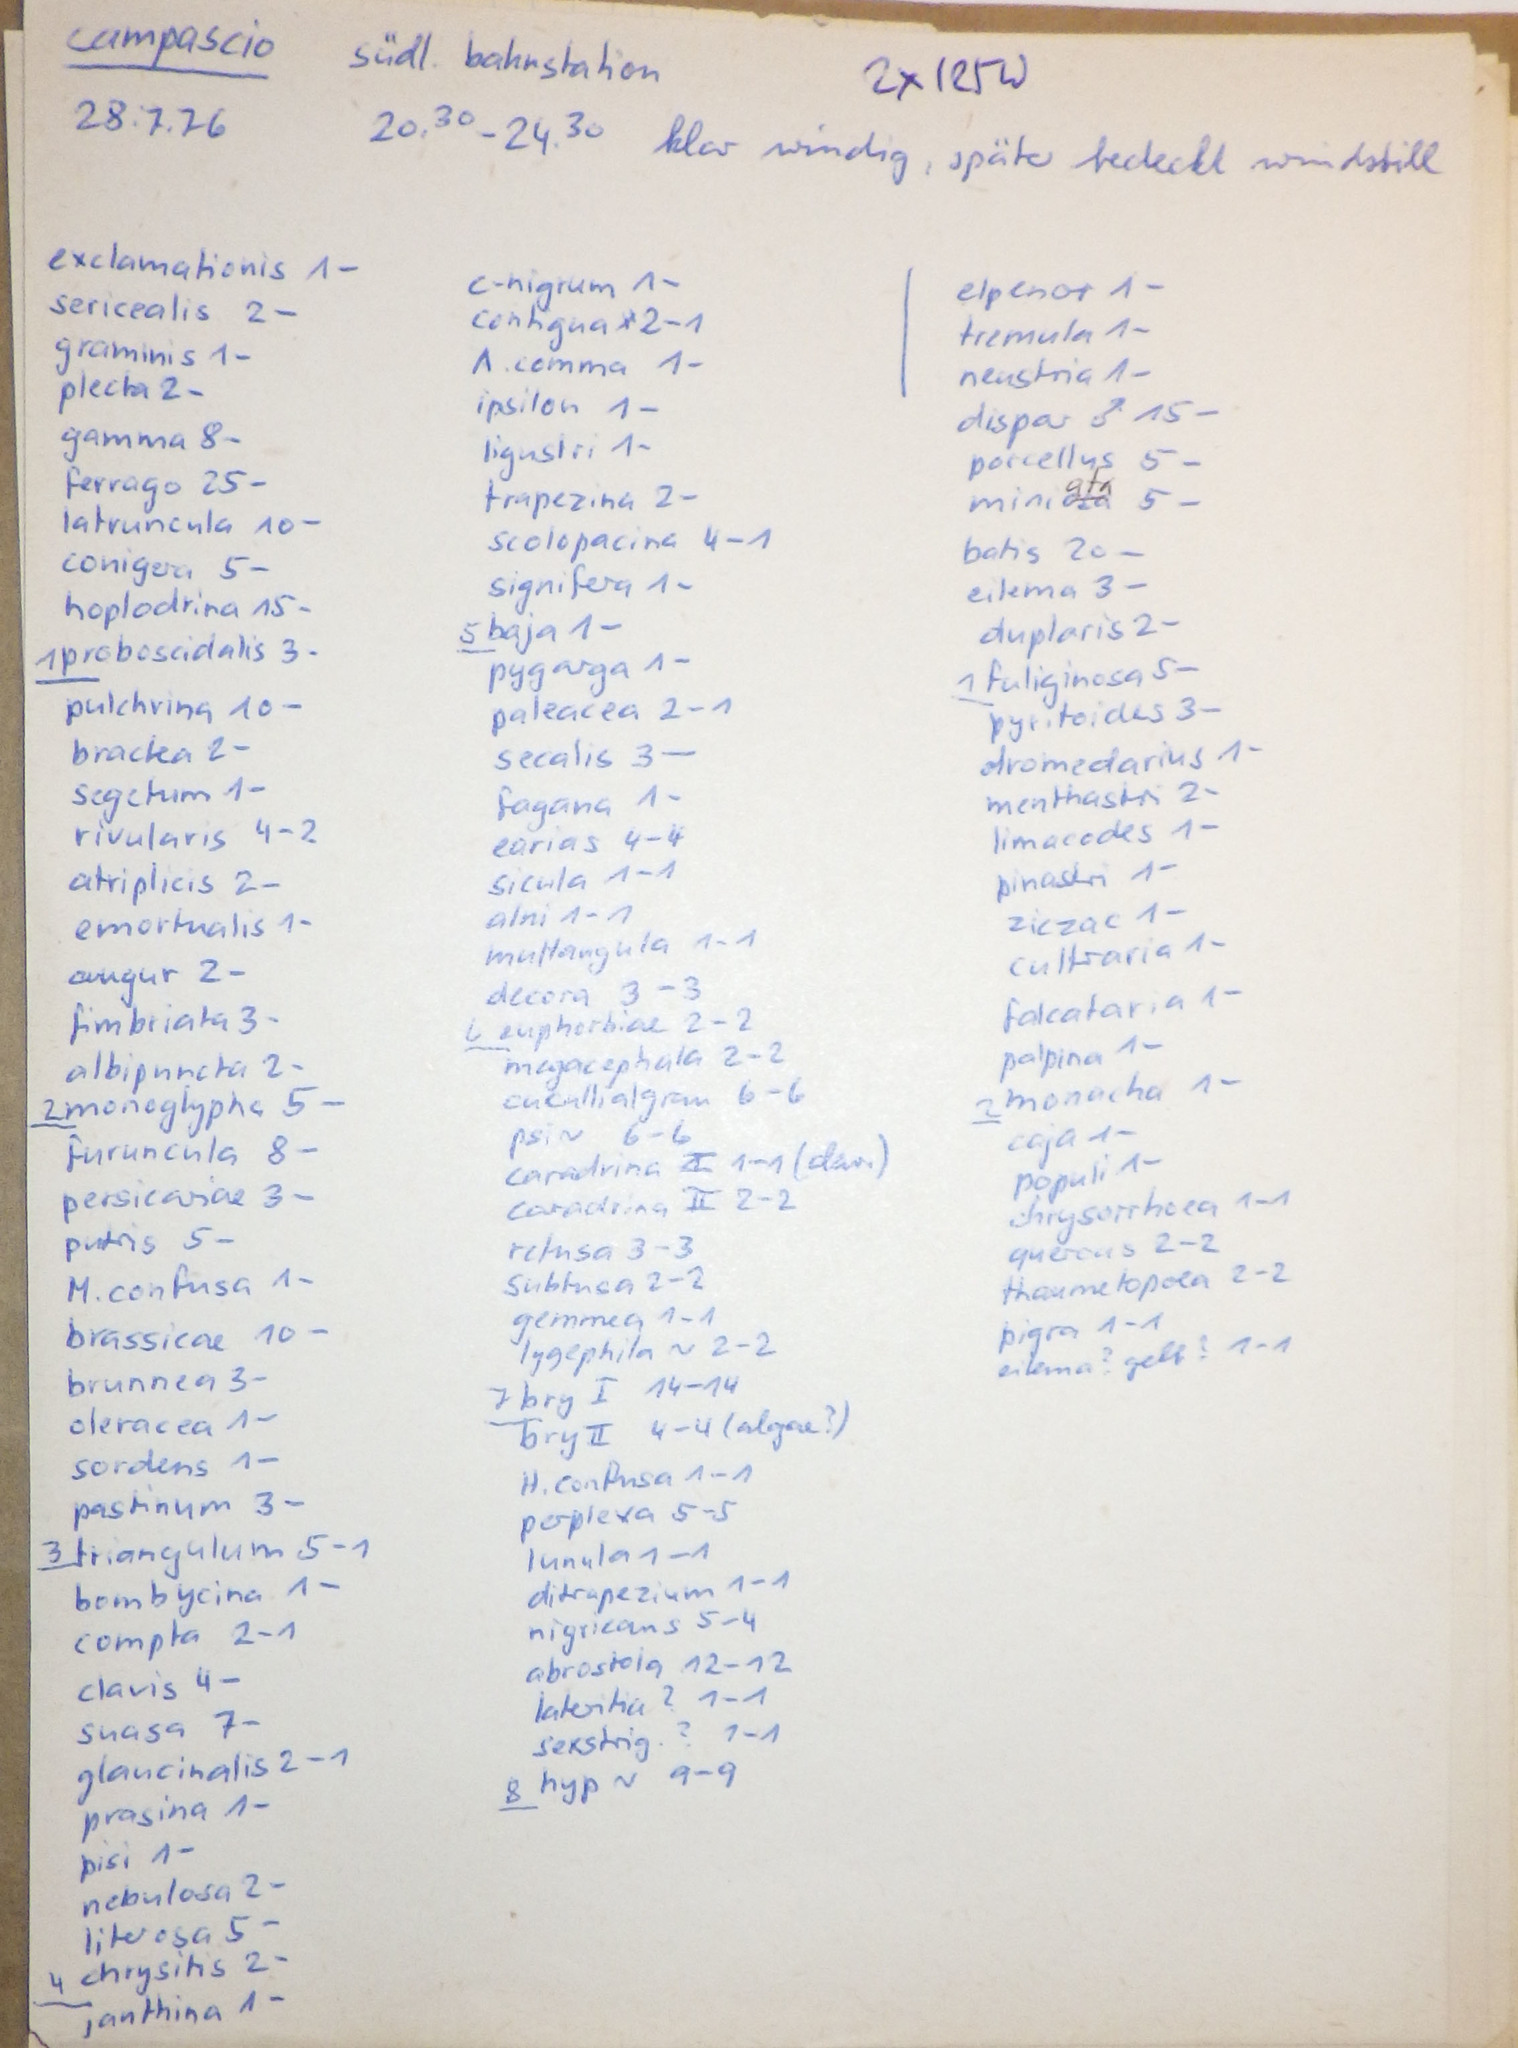 campascio südl. bahnstation 2x125W
28.7.76 20.30-24.30 klar windig, später bedeckt windstill
exclamationis 1-
sericealis 2-
graminis 1-
plecta 2-
gamma 8-
ferrago 25-
latruncula 10-
conigera 5-
hoplodrina 15-
1 proboscidalis 3-
pulchrina 10-
bractea 2-
segetum 1-
rivularis 4-2
atriplicis 2-
emortualis 1-
augur 2-
fimbriata 3-
albipuncta 2-
2 monoglypha 5-
furuncula 8-
persicariae 3-
putris 5-
M. confusa 1-
brassicae 10-
brunnea 3-
oleracea 1-
sordens 1-
pastinum 3-
3 triangulum 5-1
bombycina 1-
compta 2-1
clavis 4-
suasa 7-
glaucinalis 2-1
prasina 1-
pisi 1-
nebulosa 2-
literosa 5-
4 chrysitis 2-
janthina 1-
c-nigrum 1-
contigua 2-1
A. comma 1-
ipsilon 1-
ligustri 1-
trapezina 2-
scolopacina 4-1
signifera 1-
5 baja 1-
pygarga 1-
paleacea 2-1
secalis 3-
fagana 1-
earias 4-4
sicula 1-1
alni 1-1
multangula 1-1
decora 3-3
6 euphorbiae 2-2
megacephala 2-2
cucullialgram 6-6
psi~ 6-6
caradrina I 1-1 (clav.)
caradrina II 2-2
retusa 3-3
subtusa 2-2
gemmea 1-1
lygephila ~ 2-2
7 bry I 14-14
bry II 4-4 (algae?)
H. confusa 1-1
perplexa 5-5
lunula 1-1
ditrapezium 1-1
nigricans 5-4
abrostola 12-12
lateritia? 1-1
sexstrig.? 1-1
8 hyp ~ 9-9
elpenor 1-
tremula 1-
neustria 1-
dispar ♂ 15-
porcellus 5-
miniata 5-
batis 20-
eilema 3-
duplaris 2-
1 fuliginosa 5-
pyritoides 3-
dromedarius 1-
menthastri 2-
limacodes 1-
pinastri 1-
ziczac 1-
cultraria 1-
falcataria 1-
palpina 1-
2 monacha 1-
caja 1-
populi 1-
chrysorrhoea 1-1
quercus 2-2
thaumetopoea 2-2
pigra 1-1
eilema? gelb? 1-1